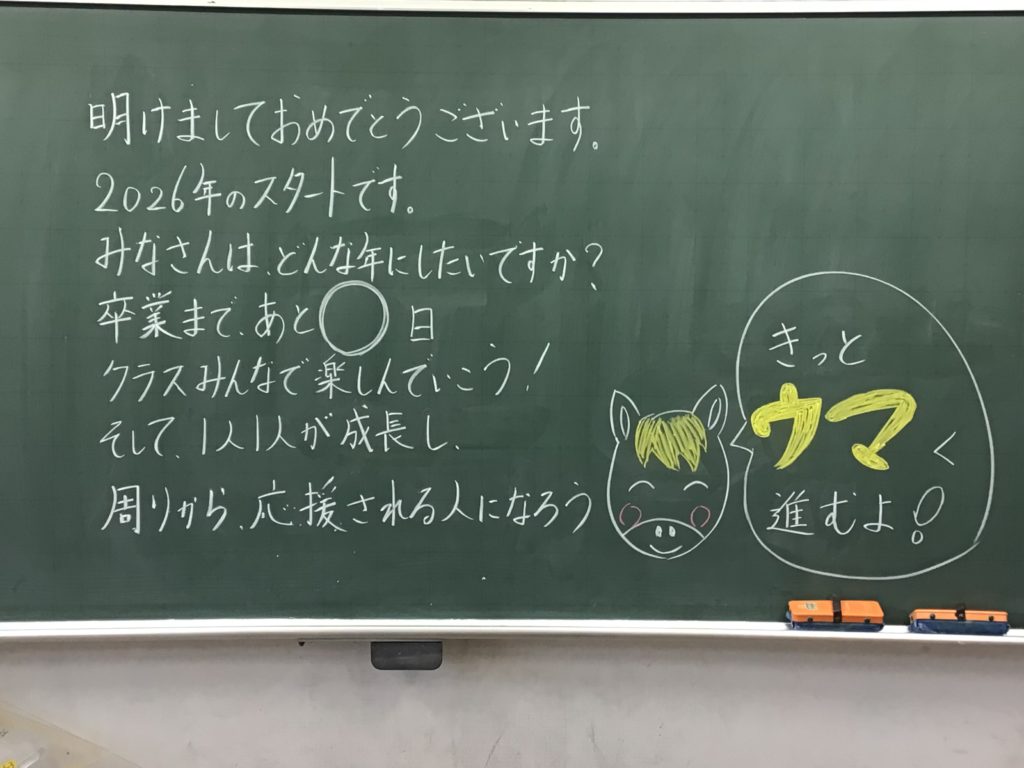 明けましておめでとうございます。
2026年のスタートです。
みなさんは、どんな年にしたいですか?
卒業まで、あと◯日
クラスみんなで楽しんでいこう!
そして、1人1人が成長し、
周りから、応援される人になろう
きっと
ウマく
進むよ!